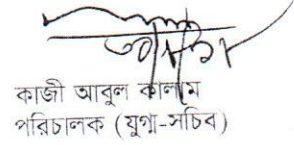 কাজী আবুল কালাম
পরিচালক (যুগ্ম-সচিব)